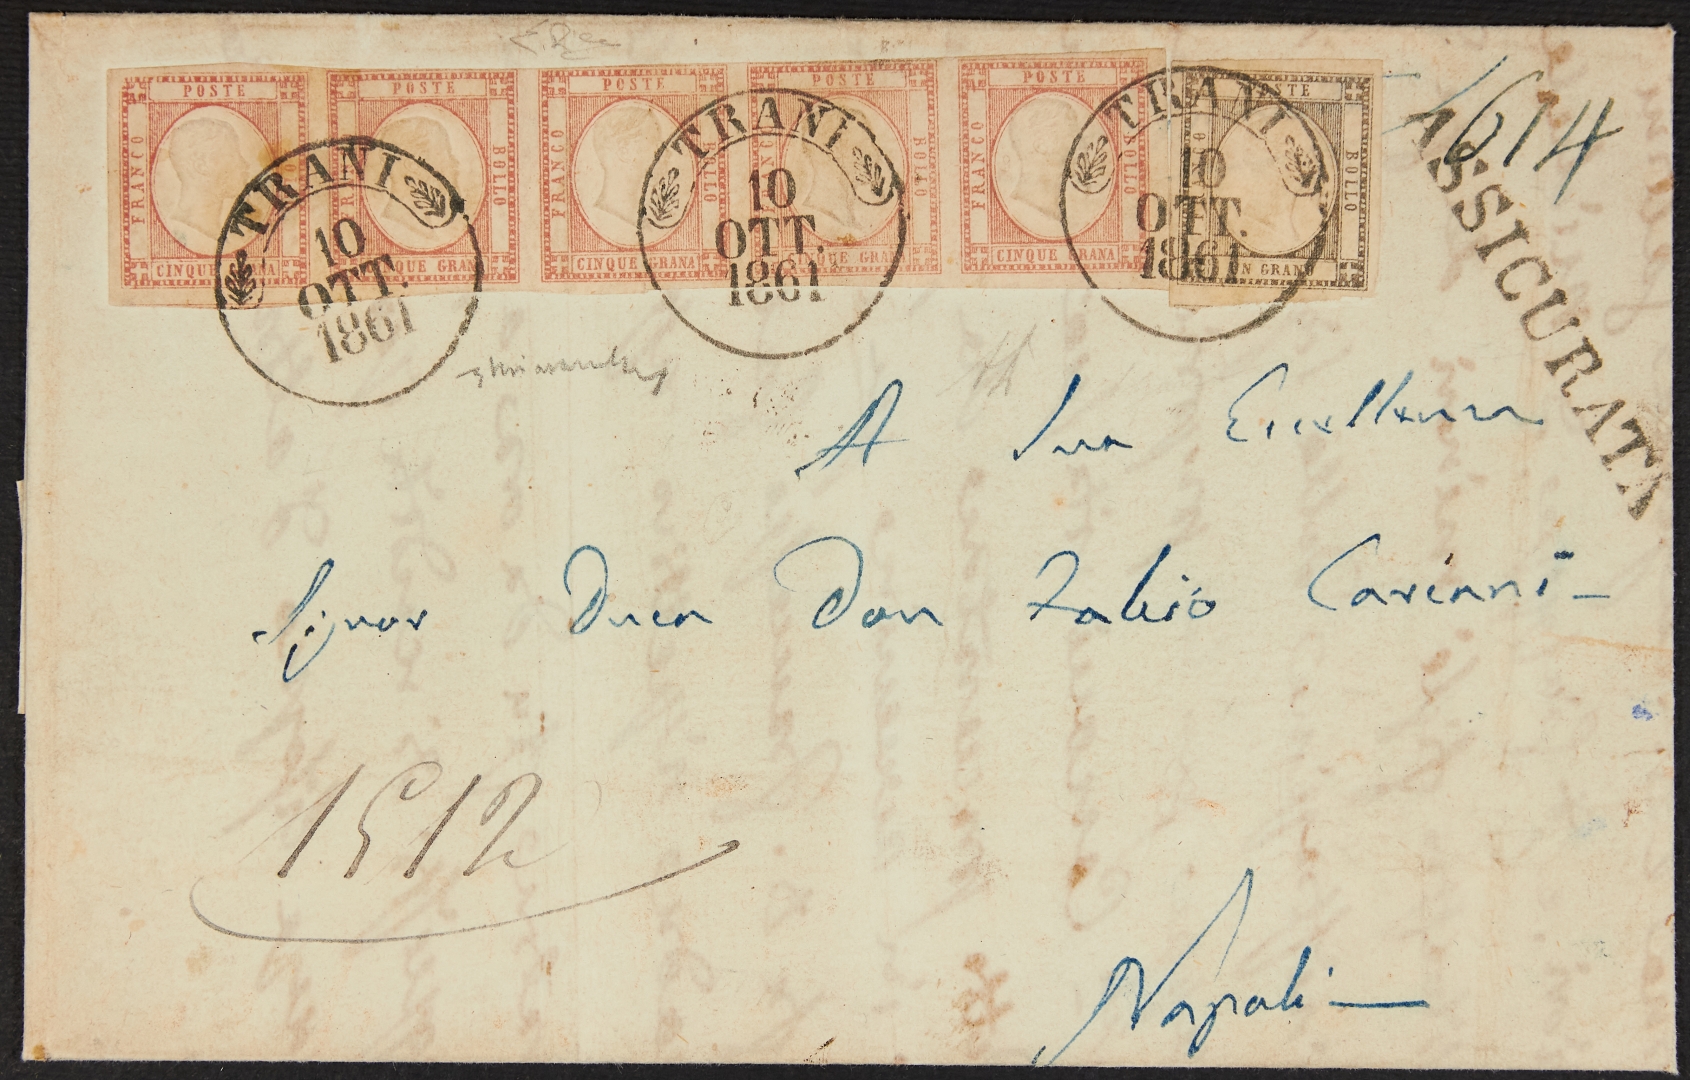 POSTE POSTE POSTE POSTE POSTE POSTE
FRANCO BOLLO FRANCO BOLLO FRANCO BOLLO BOLLO
CINQUE GRANA CINQUE GRANA CINQUE GRANA CINQUE GRANA CINQUE GRANA UN GRANO
TRANI TRANI TRANI
10 10 10
OTT. OTT. OTT.
1861 1861 1861
1614
ASSICURATA
A Sua Eccellenza
Signor Duca Don Fabio Carcani
1512
Napoli